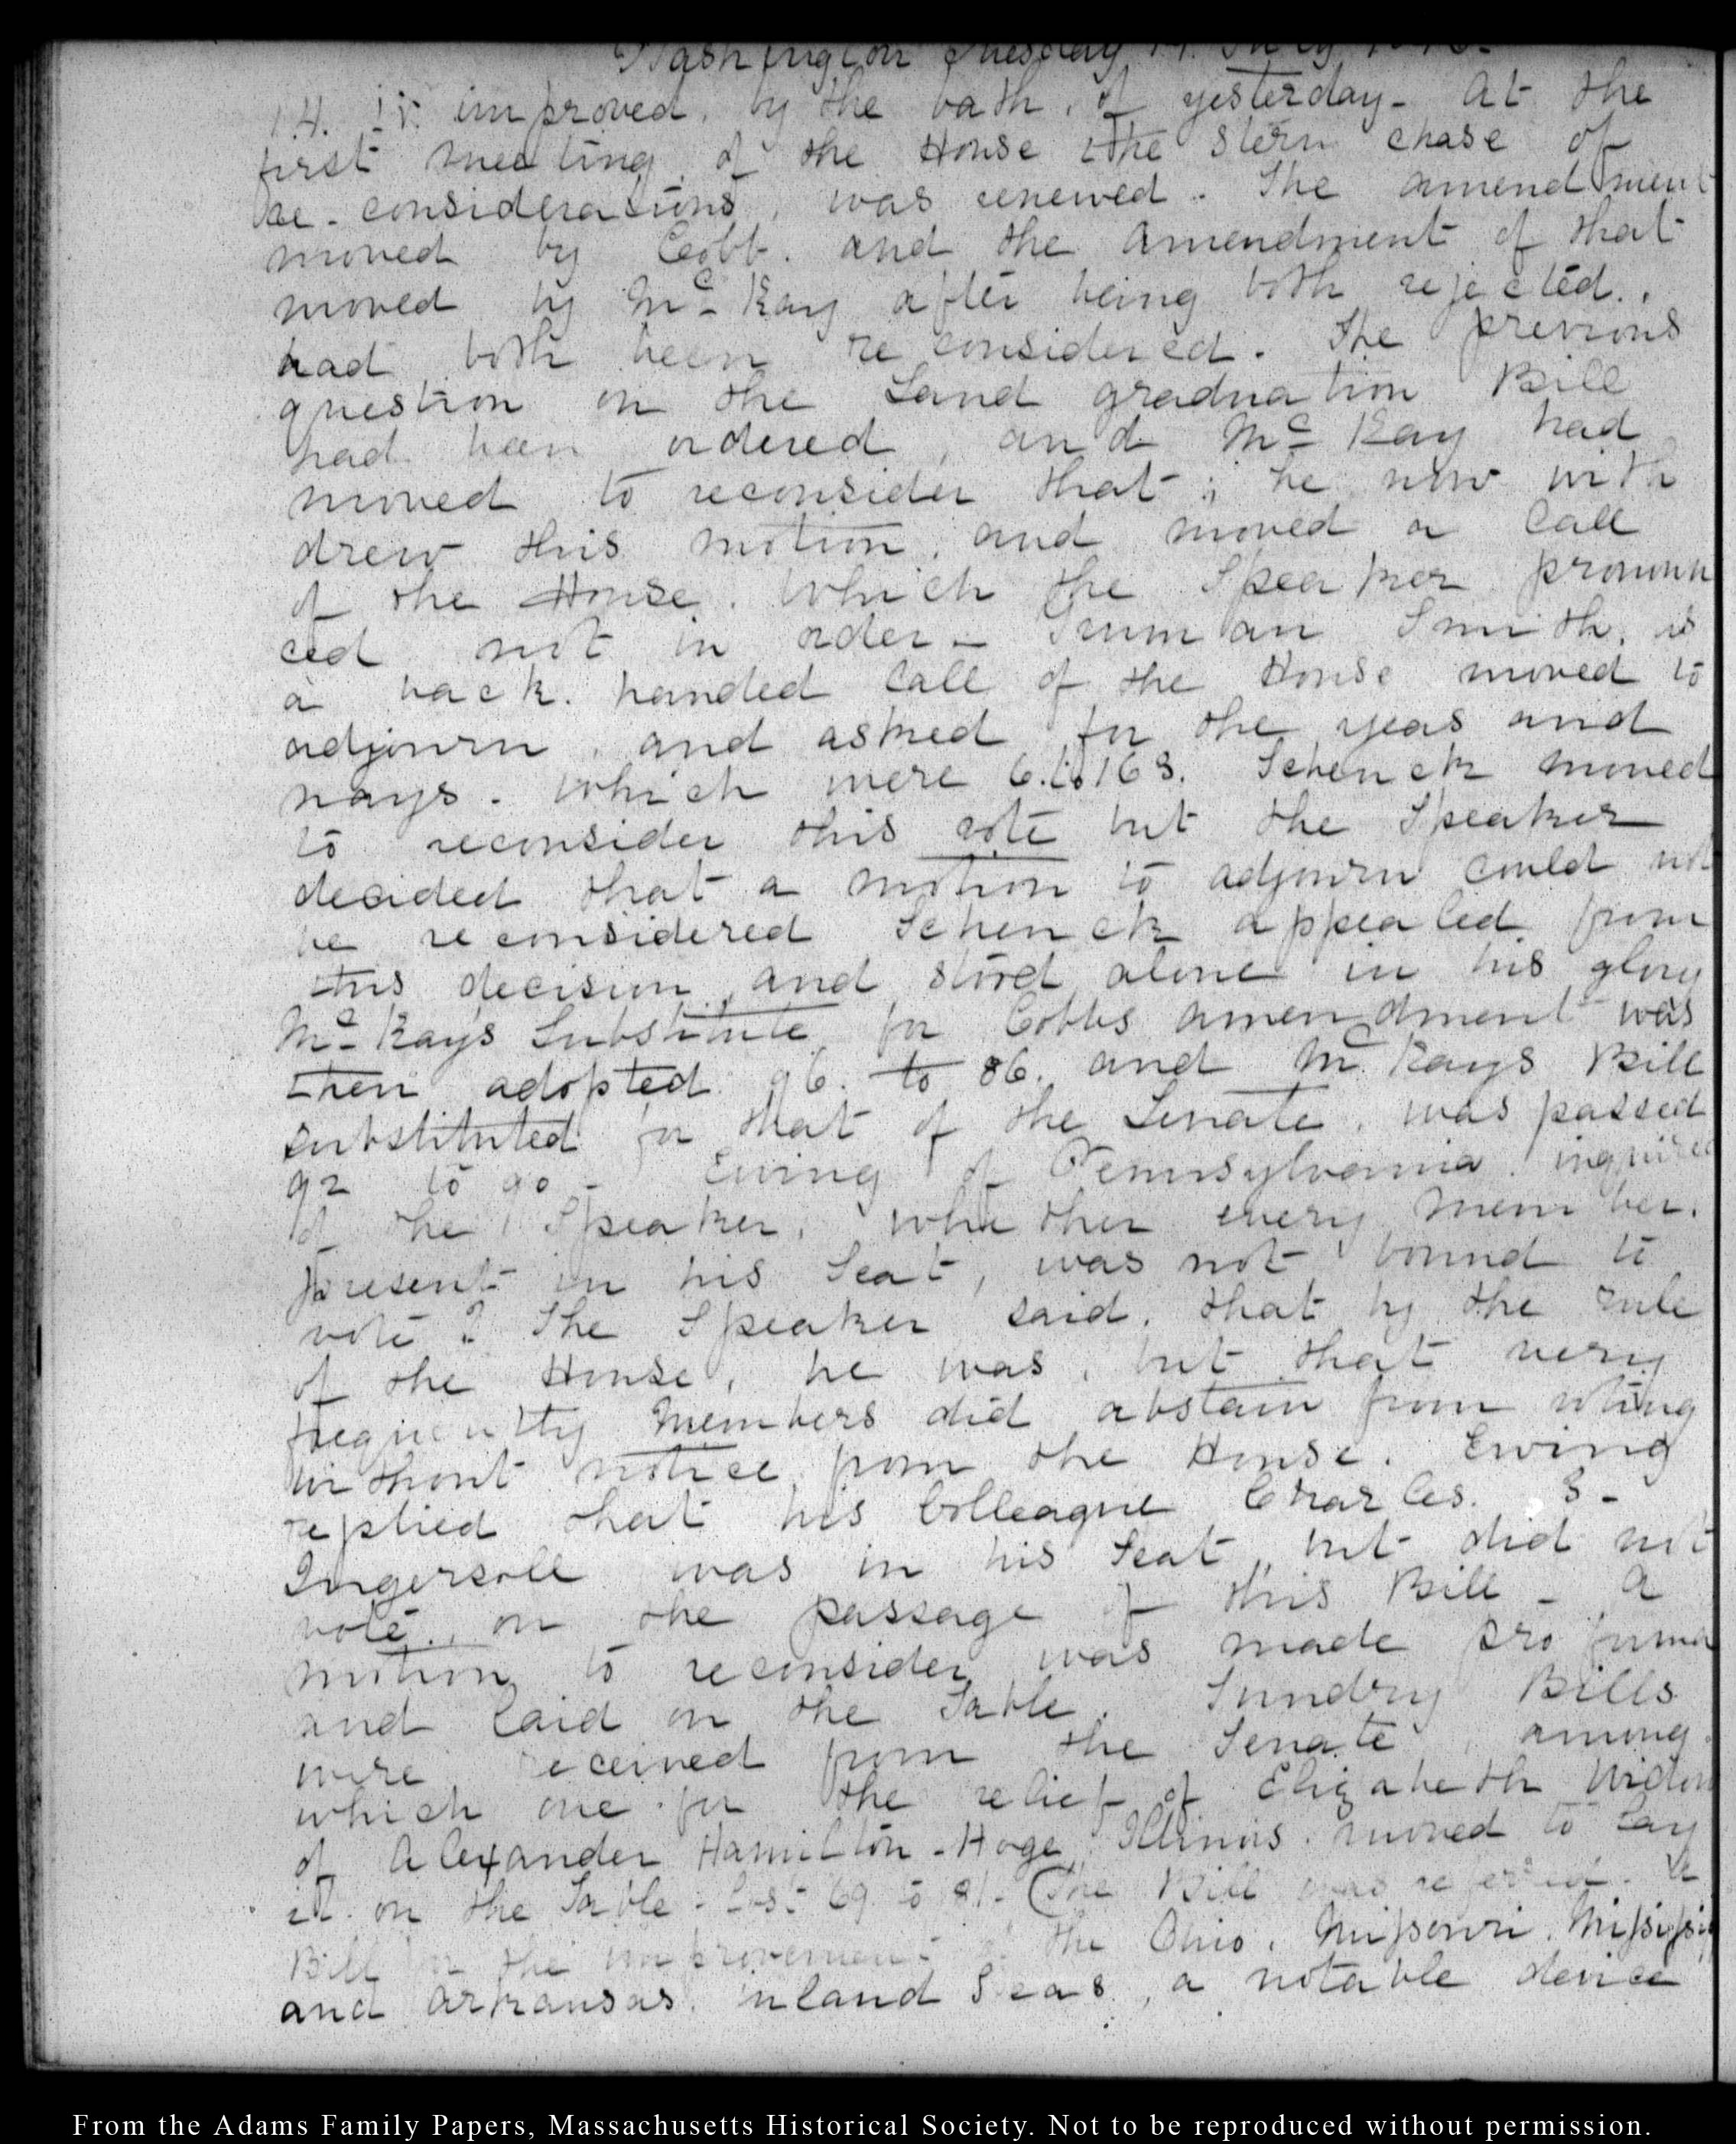 Washington Tuesday 14. July 1846-
14. IV. improved, by the bath, of yesterday- At the
first meeting, of the House the stern chase of
re-considerations, was renewed. The amendment
moved by Cobb. and the Amendment of that
moved by Mc Kay after being both rejected.,
had both been re considered. The previous
question on the Land graduation Bill
had been ordered, and Mc Kay had
moved to reconsider that; he now with
drew this motion, and moved a Call
of the House. Which the Speaker pronoun
ced not in order- Truman Smith, as
a back. handed Call of the House moved to
adjourn, and asked for the yeas and
nays. Which were 6. to 168. Schenck moved
to reconsider this vote but the Speaker
decided that a motion to adjourn could not
be reconsidered Schenck appealed from
this decision, and stood alone in his glory
Mc Kays Substitute for Cobbs amendment was
then adopted 96. to 86. and Mc Kays Bill
substituted for that of the Senate, was passed
92 to 90- Ewing of Pennsylvania. inquired
of the Speaker, whether every Member.
present in his Seat, was not bound to
vote? The Speaker said, that by the rule
of the House, he was, but that very
frequently Members did abstain from voting
without notice from the House. Ewing
replied that his Colleague Charles. J-
Ingersoll was in his Seat, but did not
vote., on the passage of this Bill- A
motion to reconsider was made pro forma
and laid on the Table. Sundry Bills
were received from the Senate, among
which one for the relief of Elizabeth Widow
of Alexander Hamilton- Hoge Illinois. moved to lay
it. on the Table- lost 69 to 91- (The Bill was referred. A
Bill for the improvement of the Ohio, Missouri, Missisippi
and Arkansas. inland Seas, a notable device
From the Adams Family Papers, Massachusetts Historical Society. Not to be reproduced without permission.